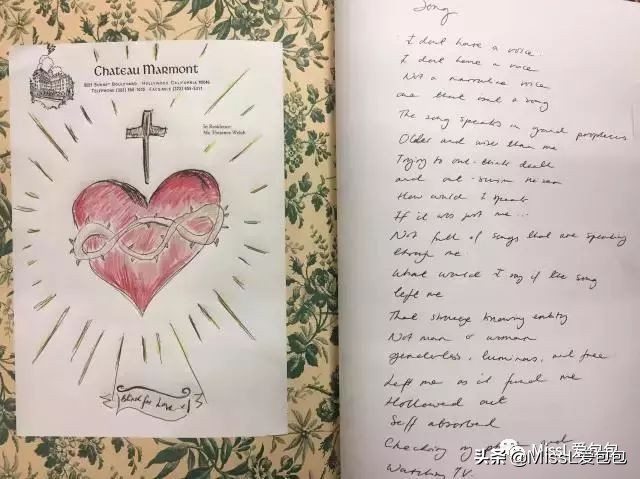 Chateau Marmont
8221 Sunset Boulevard, Hollywood California 90046
In Residence:
Ms. Florence Welch
Blind for Love
Song
I dont have a voice
I dont have a voice
Not a narrative voice
one that isnt a song
The song speaks in grand prophecies
Older and wiser than me
Trying to out-think death
and out-swim
How would I speak
If it was just me...
Not full of songs that are speaking
through me
What would I say if the song
left me
That strange knowing entity
Not man or woman
genderless, luminous, and free
Left me as it found me
Hollowed out
Self absorbed
Checking my
Watching TV.
MissL爱包包
头条 @MissL爱包包